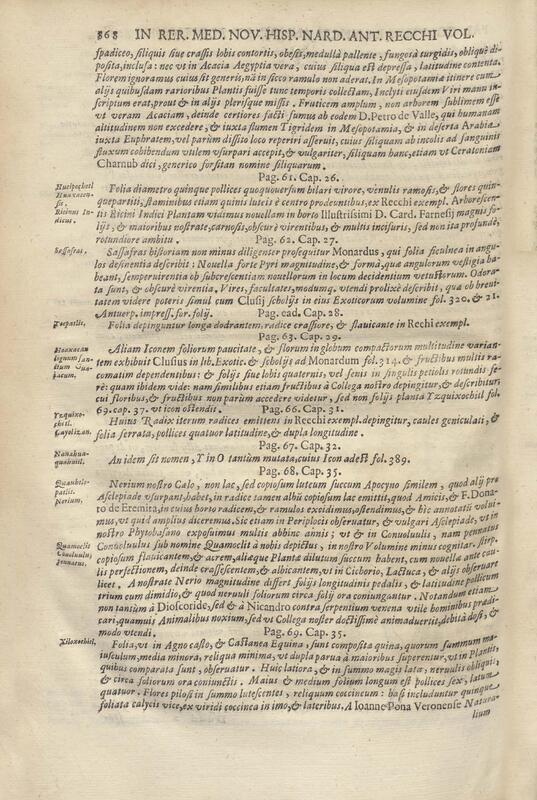 868 IN RER. MED. NOV. HISP. NARD. ANT. RECCHI VOL.
spadiceo, siliquis siue crassis lobis contortis, obesis, medullâ pallente, fungosâ turgidis, obliquè di-
posita, inclusa: nec vt in Acacia Aegyptia vera, cuius siliqua est depressa, latitudine contenta.
Florem ignoramus cuius sit generis, nā in sicco ramulo non aderat. In Mesopotamia itinere cum
alijs quibusdam rarioribus Plantis fuisse tunc temporis collectam, Inclyti eiusdem Viri manu in-
scriptum erat, prout & in alijs plerisque missis. Fruticem amplum, non arborem sublimem esse
vt veram Acaciam, deinde certiores facti sumus ab eodem D. Petro de Valle, qui humanam
altitudinem non excedere, & iuxta flumen Tigridem in Mesopotamia, & in deserta Arabia
iuxta Euphratem, vel parùm dissito loco reperiri asseruit, cuius siliquam ab incolis ad sanguinis
fluxum cohibendum vtilem vsurpari accepit, & vulgariter, siliquam hanc, etiam vt Ceratoniam
Charnub dici, generico forsitan nomine siliquarum.
Pag. 61. Cap. 26.
Folia diametro quinque pollices quoquouersum hilari virore, venulis ramosis, & flores quin-
quepartiti, staminibus etiam quinis luteis è centro prodeuntibus, ex Recchi exempl. Arborescen-
Ricinus In-
dicus.
tis Ricini Indici Plantam vidimus nouellam in horto Illustrissimi D. Card. Farnesij magnis fo-
lijs, & maioribus nostrate, carnosis, obscurè virentibus, & multis incisuris, sed non ita profundè,
rotundiore ambitu.
Pag. 62. Cap. 27.
Sassafras.
Sassafras historiam non minus diligenter prosequitur Monardus, qui folia ficulnea in angu-
los desinentia describit: Nouella fortè Pyri magnitudine, & formâ, quæ angulorum vestigia ha-
beant, semperuirentia ob subcrescentiam nouellorum in locum decidentium vetustiorum. Odora-
ta sunt, & obscurè virentia. Vires, facultates, modumq. vtendi prolixè describit, quæ ob breui-
tatem videre poteris simul cum Clusij scholijs in eius Exoticorum volumine fol. 320. & 21.
Antuerp. impress. for. folij.
Pag. ead. Cap. 28.
Folia depinguntur longa dodrantem, radice crassiore, & flauicante in Rechi exempl.
Pag. 63. Cap. 29.
Hoaxacan
lignum san-
ctum Gua-
jacum.
Aliam Iconem foliorum paucitate, & florum in globum compactorum multitudine varian-
tem exhibuit Clusius in lib. Exotic. & scholijs ad Monardum fol. 314. & fructibus multis ra-
cematim dependentibus: & folijs siue lobis quaternis, vel senis in singulis petiolis rotundis fe-
rè: quam ibidem vide: nam similibus etiam fructibus à Collega nostro depingitur, & describitur,
cui floribus, & fructibus non parùm accedere videtur, sed non folijs planta Yzquixochitl fol.
69. cap. 37. vt icon ostendit.
Pag. 66. Cap. 31.
Yzquixo-
chitl.
Huius Radix iterum radices emittens in Recchi exempl. depingitur, caules geniculati, &
folia serrata, pollices quatuor latitudine, & dupla longitudine.
Pag. 67. Cap. 32.
An idem sit nomen, Y in O tantùm mutata, cuius Icon adest fol. 389.
Pag. 68. Cap. 35.
Nerium.
Nerium nostro Cælo, non lac, sed copiosum luteum succum Apocyno similem, quod alij pro
Asclepiade vsurpant, habet, in radice tamen albū copiosum lac emittit, quod Amicis, & F. Dona-
to de Eremita, in cuius horto radicem, & ramulos excidimus, ostendimus, & hic annotari volui-
mus, vt quid amplius diceremus. Sic etiam in Periplocis obseruatur, & vulgari Asclepiade, vt in
nostro Phytobasano exposuimus multis abhinc annis; vt & in Conuoluulis, nam pennatus
Quamoclit
Conuoluulus sub nomine Quamoclit à nobis depictus, in nostro Volumine minus cognitar. stirp.
copiosum flauicantem, & acrem, aliæque Planta dilutum succum habent, cum nouella ante cau-
lis perfectionem, deinde crassescentem, & albicantem, vt in Cichorio, Lactuca, & alijs obseruare
licet. A nostrate Nerio magnitudine differt folijs longitudinis pedalis, & latitudine pollicum
trium cum dimidio, & quod nerui foliorum circa folij ora coniungantur. Notandum etiam
non tantùm à Dioscoride, sed & à Nicandro contra serpentium venena vtile hominibus prædi-
cari, quamuis Animalibus noxium, sed vt Collega noster doctissimè animaduertit, debita dosi, &
modo vtendi.
Pag. 69. Cap. 35.
Xiloxochitl.
Folia, vt in Agno casto, & Castanea Equina, sunt composita quina, quorum summum ma-
iusculum, media minora, reliqua minima, vt dupla parua à maioribus superentur, vt in Plantis,
quibus comparata sunt, obseruatur. Huic latiora, & in summo magis lata, neruulis obliquis,
& circa foliorum ora coniunctis. Maius & medium folium longum est pollices sex, latum
quatuor. Flores pilosi in summo lutescentes, reliquum coccineum: basi includuntur quinque
foliata calycis vice, ex viridi coccinea in imo, & lateribus. A Ioanne Pona Veronense Natura-
lium